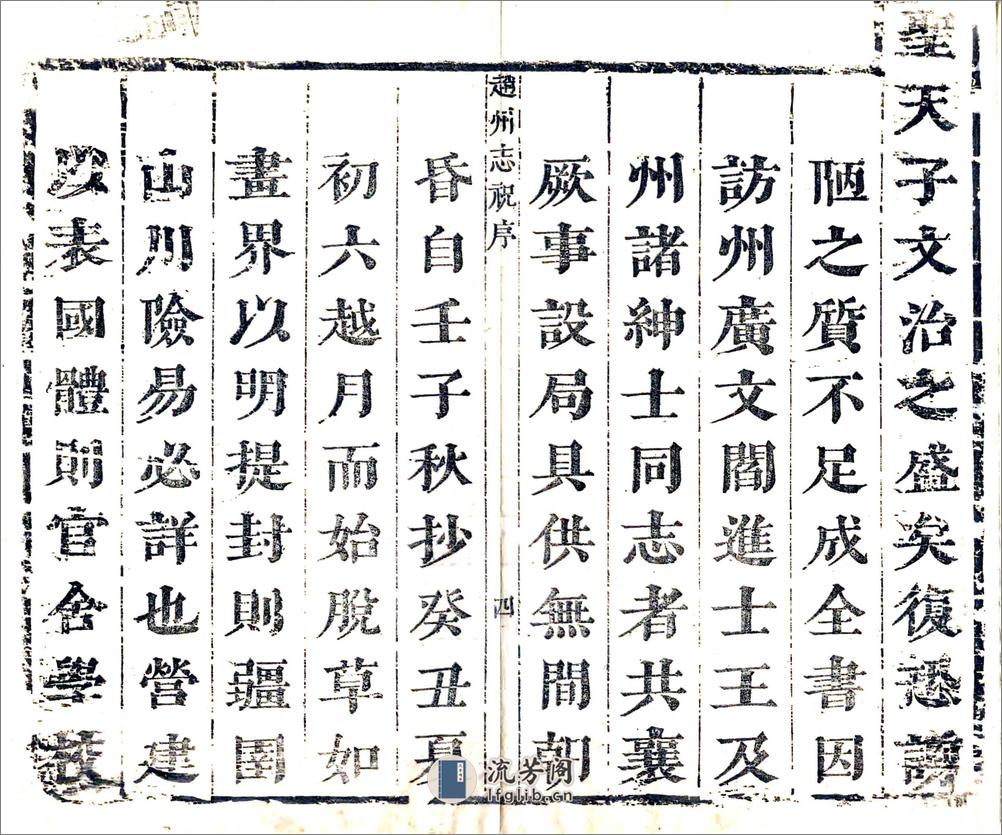 聖天子文治之盛矣復恐譾
陋之質不足成全書因
訪州廣文閻進士王及
州諸紳士同志者共襄
厥事設局具供無間朝
趙州志祝序
四
昏自壬子秋抄癸丑夏
初六越月而始脫草如
畫界以明提封則疆圉
山川險易必詳也營建
以表國體則官舍學校
流芳阁
lfglib.cn